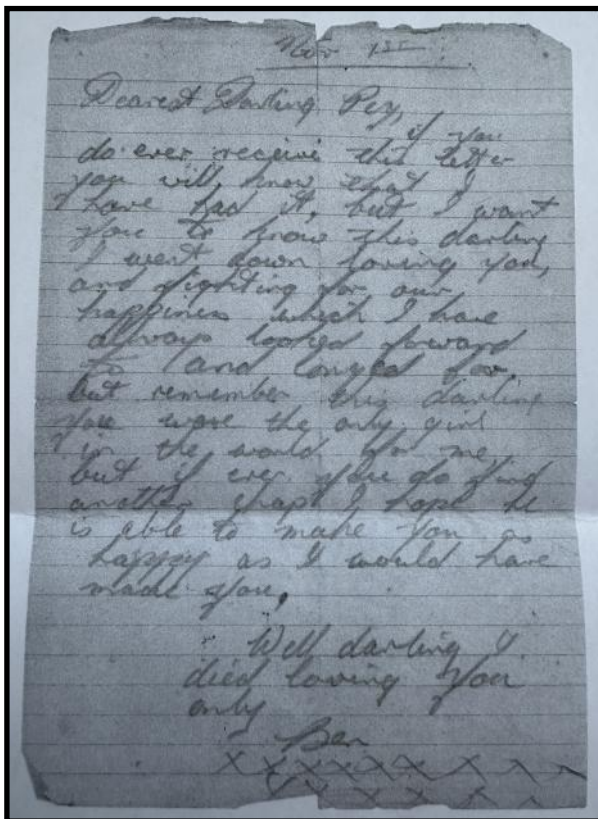 Nov 1st
Dearest Darling Peg,
if you
do ever receive this letter
you will know that I
have had it, but I want
you to know this darling
I went down loving you,
and fighting for our
happiness which I have
always looked forward
to and longed for.
but remember this darling
you were the only girl
in the world for me,
but if ever you do find
another chap I hope he
is able to make you as
happy as I would have
made you,
Well darling I
died loving you
only
Ben
X X X X X X X X X
X X X X X